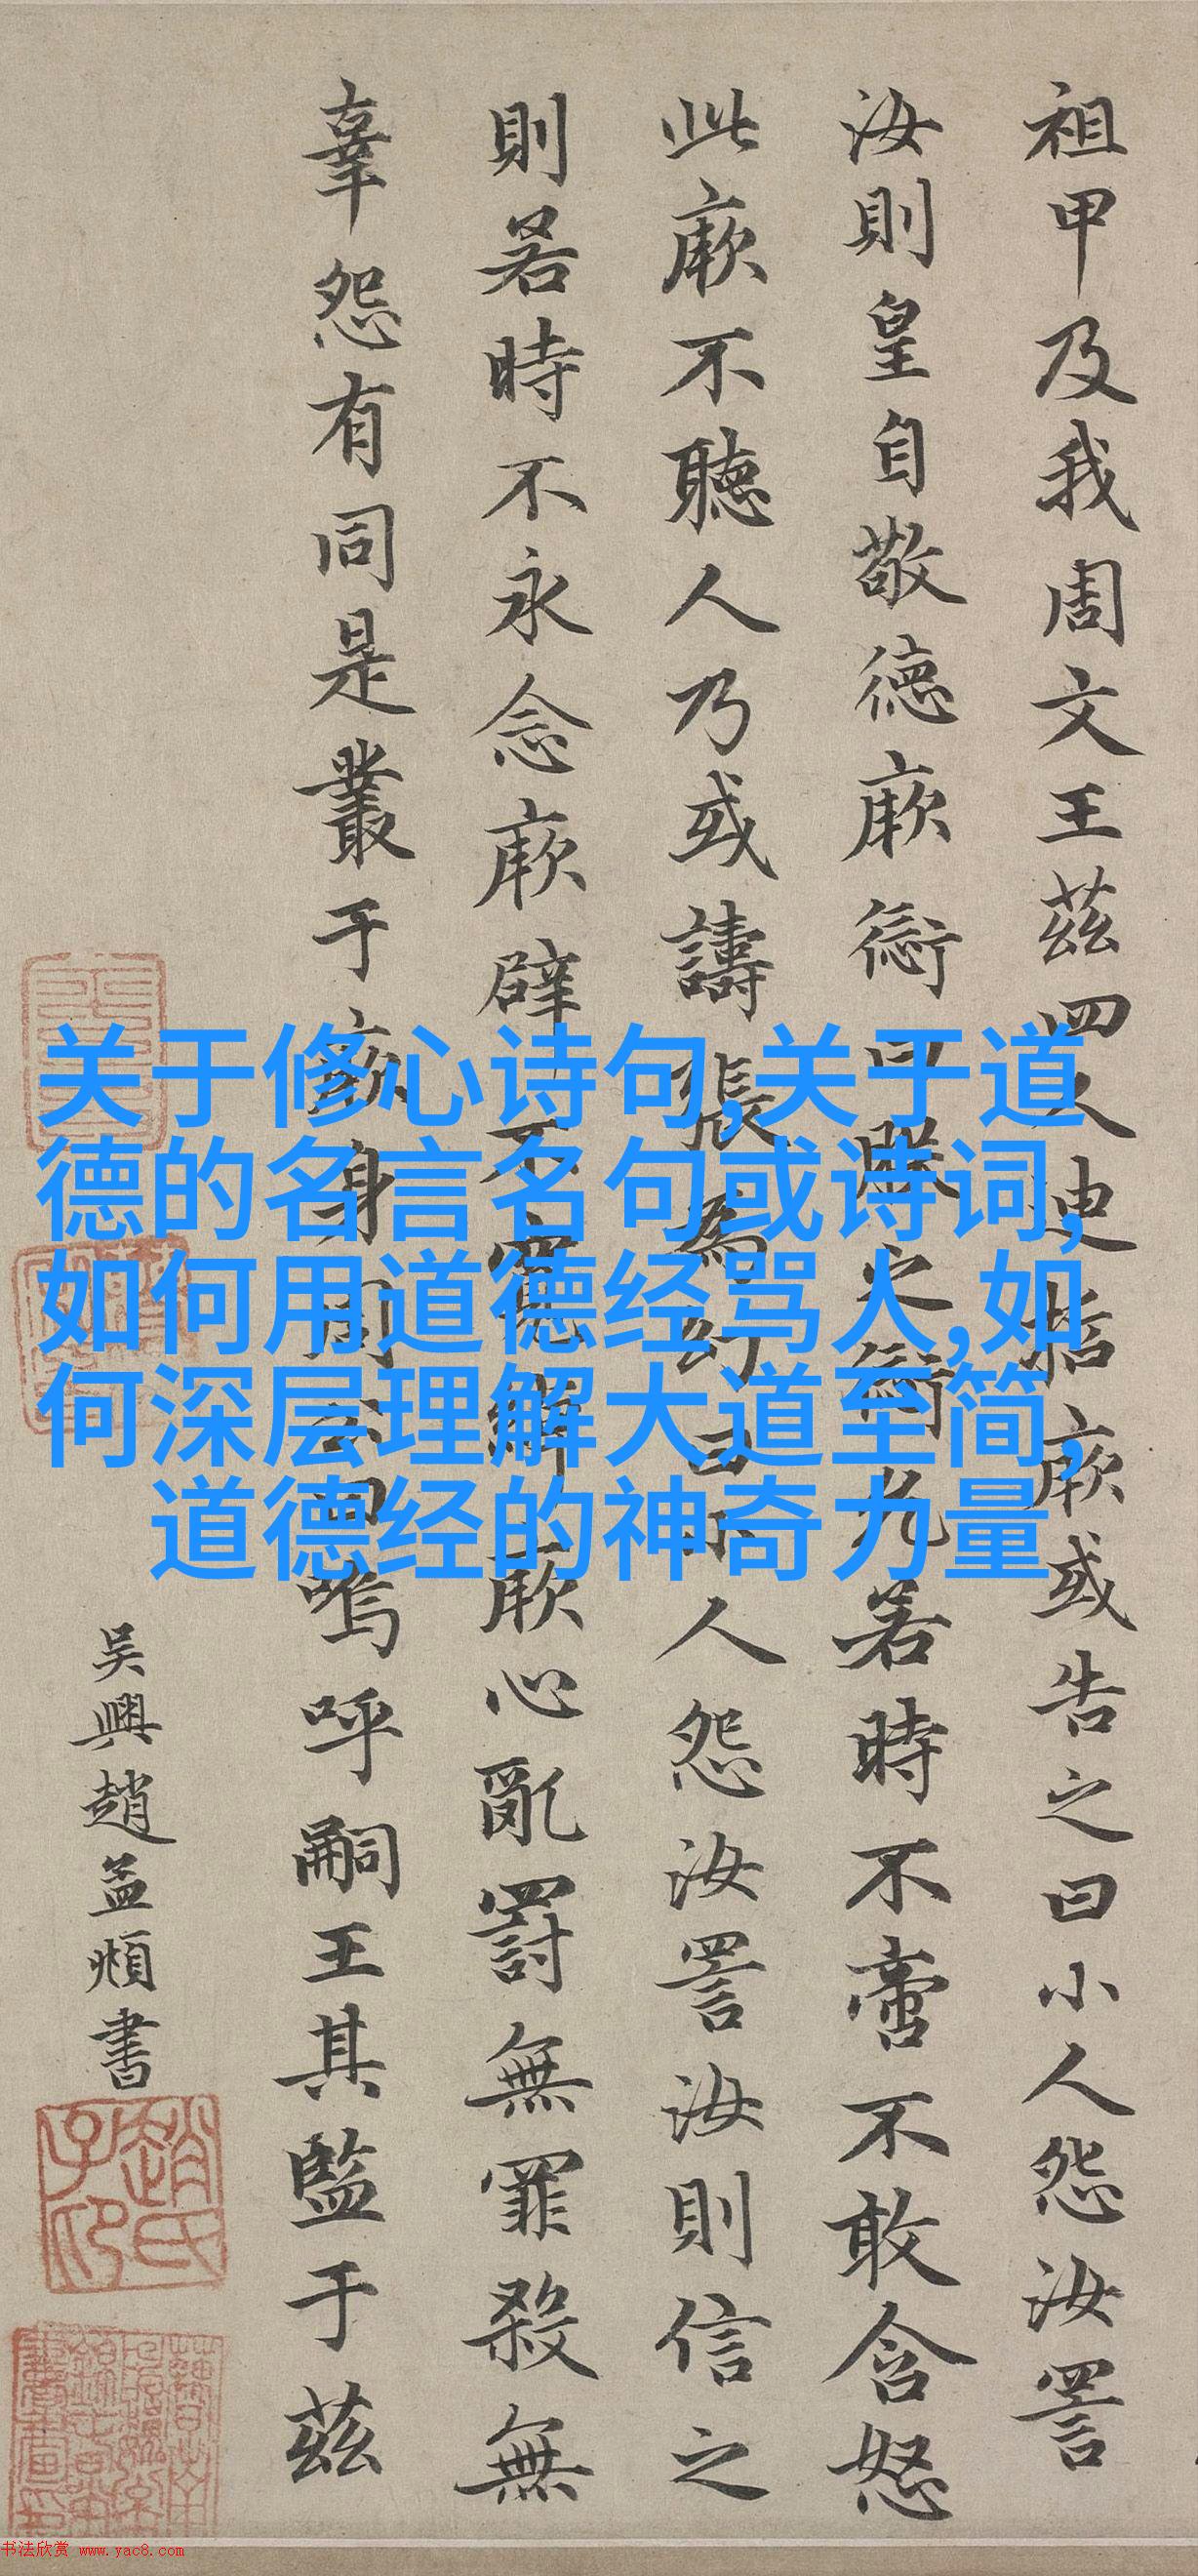 祖甲及我周文王茲四人迪哲厥或告之曰小人怨汝詈
汝則皇自敬德厥愆曰朕之愆允若時不啻不敢含怒
此厥不聽人乃或譸張為幻曰小人怨汝詈汝則信之
則若時不永念厥辟不寬綽厥心亂罰無罪殺無
辜怨有同是叢于厥身周公曰嗚呼嗣王其監于茲
吴興趙孟頫書
趙氏子卬
关于修心诗句,关于道
德的名言名句或诗词,
如何用道德经骂人,如
何深层理解大道至简,
道德经的神奇力量
书法欣赏 www.yac8.com